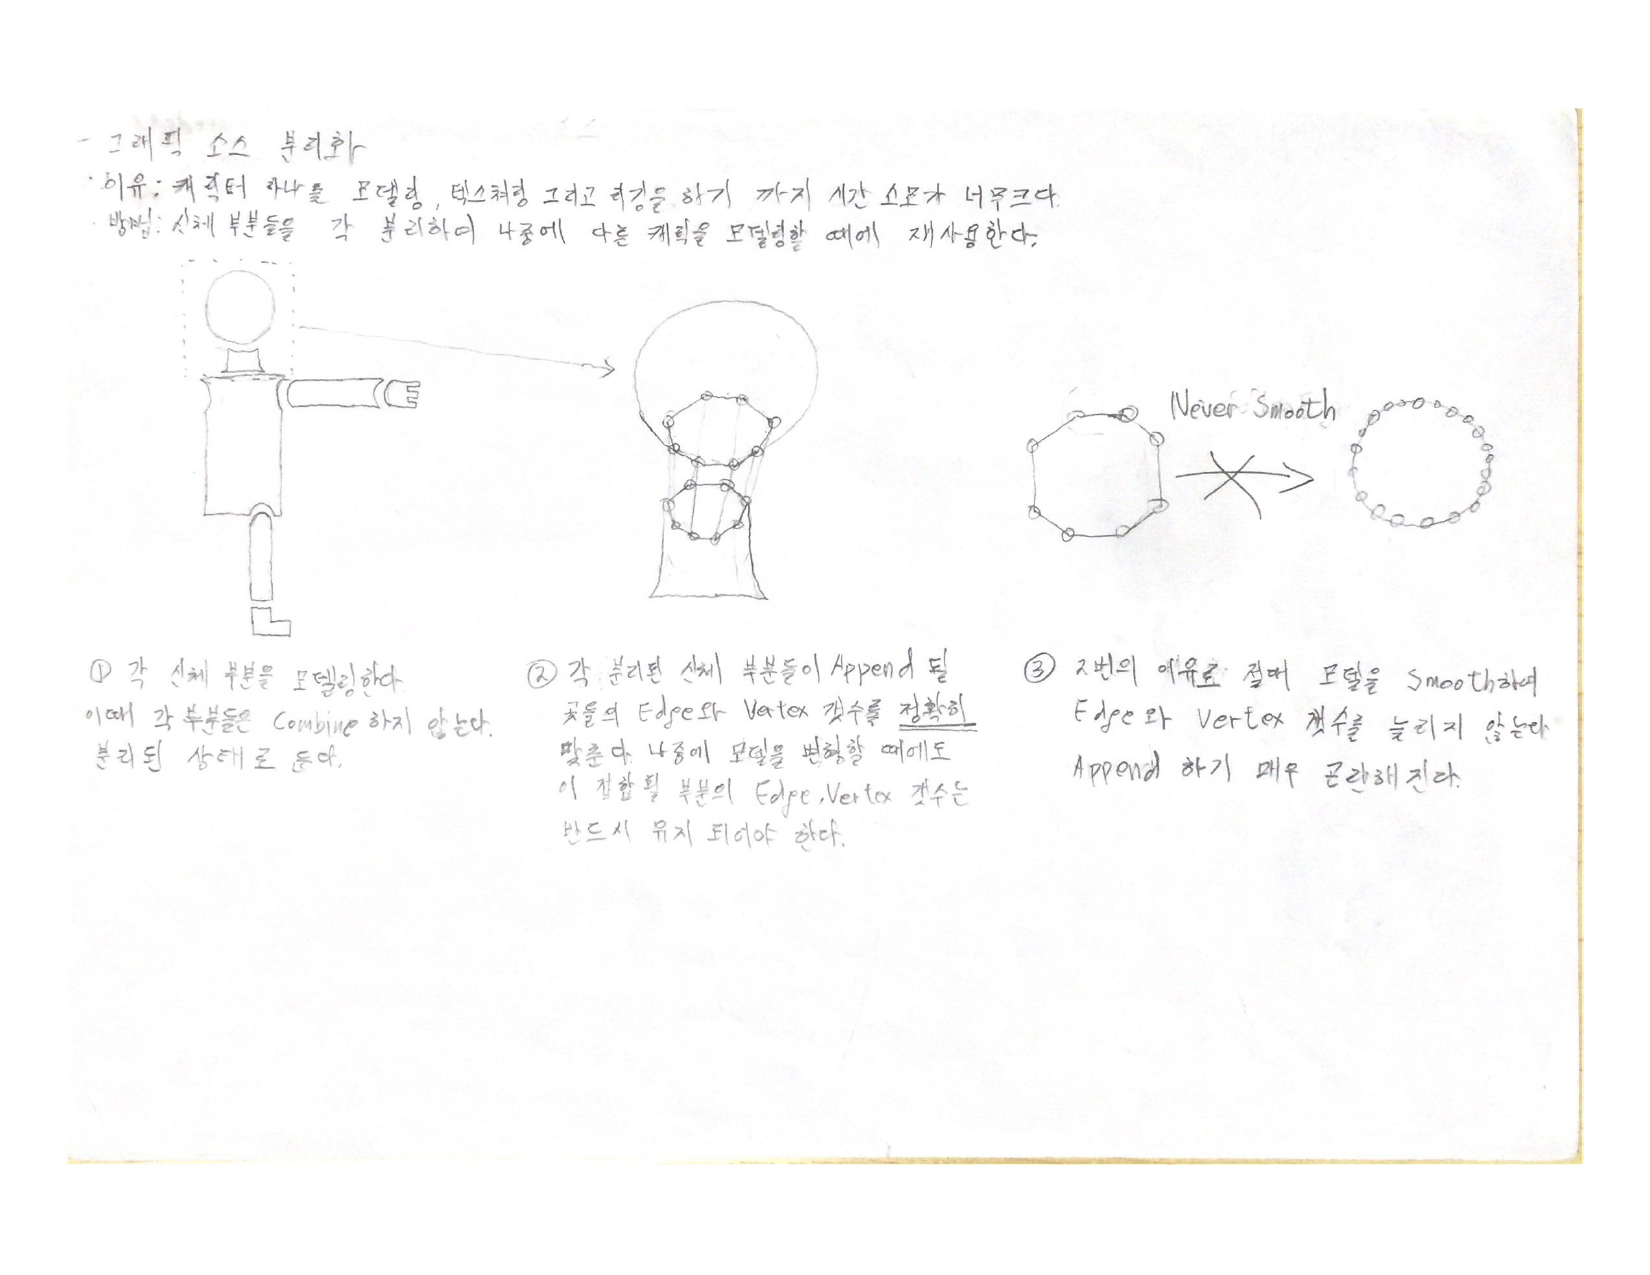 - 그래픽 소스 분리화
· 이유: 캐릭터 하나를 모델링, 텍스쳐링 그리고 리깅을 하기 까지 시간 소모가 너무크다.
· 방법: 신체 부분들을 각 분리하여 나중에 다른 캐릭을 모델링할 때에 재사용한다.
Never Smooth
① 각 신체 부분을 모델링한다.
이때 각 부분들은 Combine 하지 않는다.
분리된 상태로 둔다.
② 각 분리된 신체 부분들이 Append 될
곳들의 Edge와 Vertex 갯수를 정확히
맞춘다. 나중에 모델을 변형할 때에도
이 접합될 부분의 Edge, Vertex 갯수는
반드시 유지 되어야 한다.
③ 2번의 이유로 절대 모델을 Smooth하여
Edge와 Vertex 갯수를 늘리지 않는다
Append 하기 매우 곤란해진다.